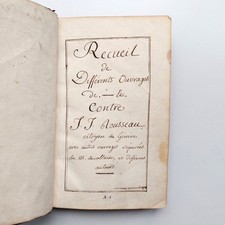 Recueil
de
Différents Ouvrages
de - le
Contre
J. J. Rousseau
citoyen de Geneve
avec autres ouvrages
de M. de voltaire, et différens
auteurs